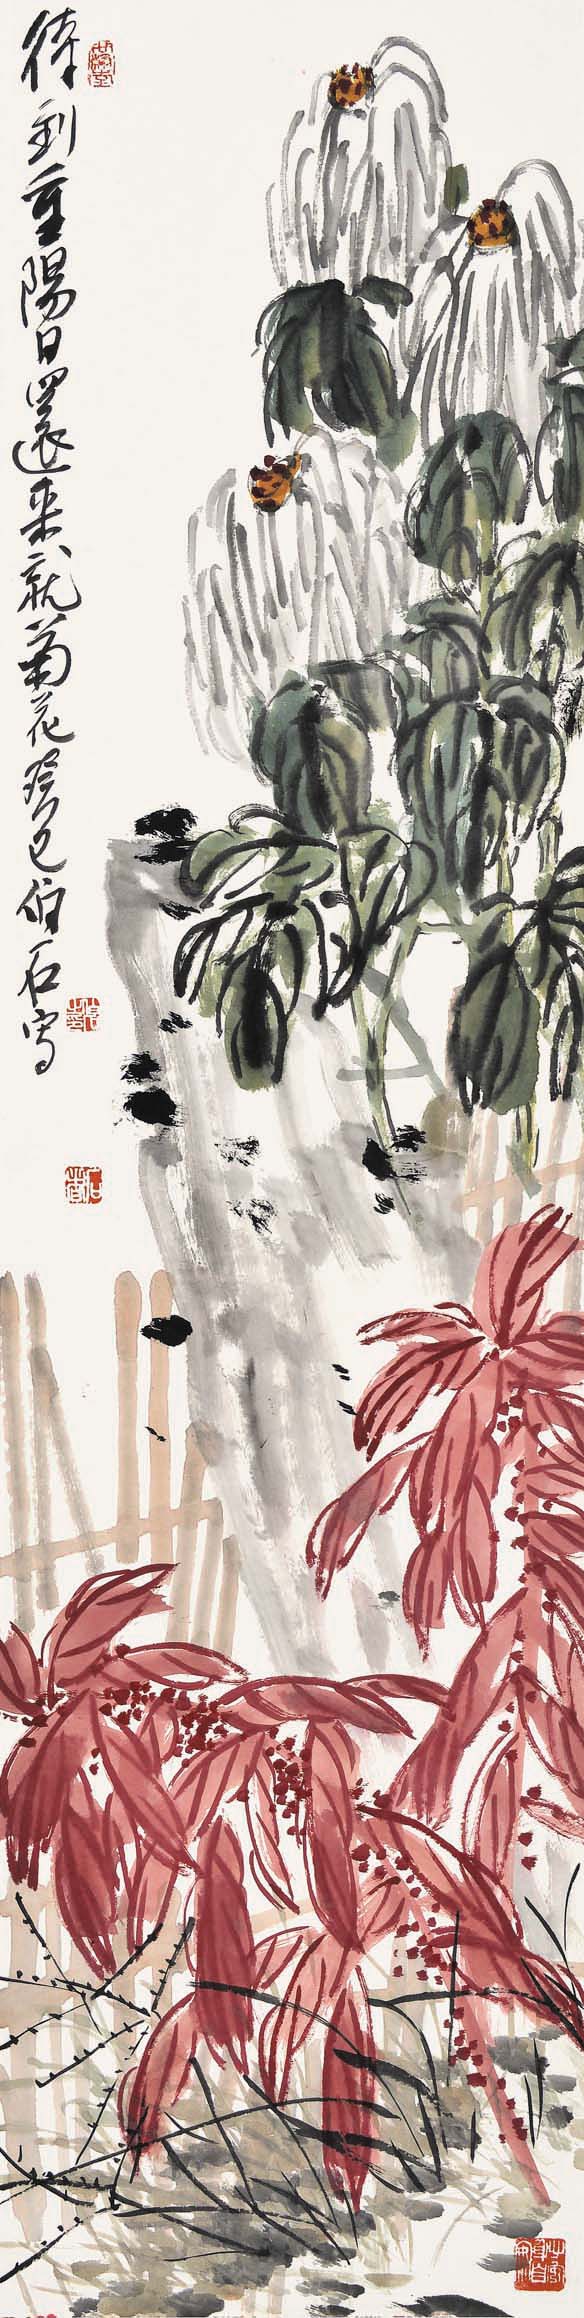 待到重陽日還來就菊花癸巳伯石寫